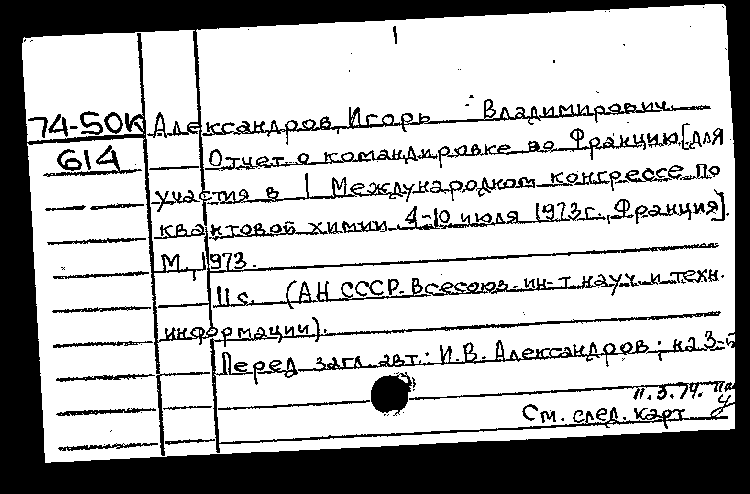 74-50К Александров, Игорь Владимирович.
614 Отчет о командировке во Францию [для
участия в I Международном конгрессе по
квантовой химии 4-10 июля 1973г., Франция].
М., 1973.
11 с. (АН СССР. Всесоюз. ин-т науч. и техн.
информации).
Перед загл. авт.: И.В. Александров; на 3-5
11.3.74.
См. след. карт